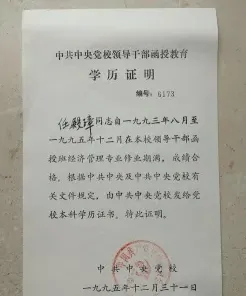 中共中央党校领导干部函授教育
学历证明
编号: 6173
任殿璋同志自一九九三年八月至
一九九五年十二月在本校领导干部函
授班经济管理专业修业期满。成绩合
格，根据中共中央及中共中央党校有
关文件规定。由中共中央党校发给党
校本科学历证书，特此证明。
中共中央党校
一九九五年十二月三十一日